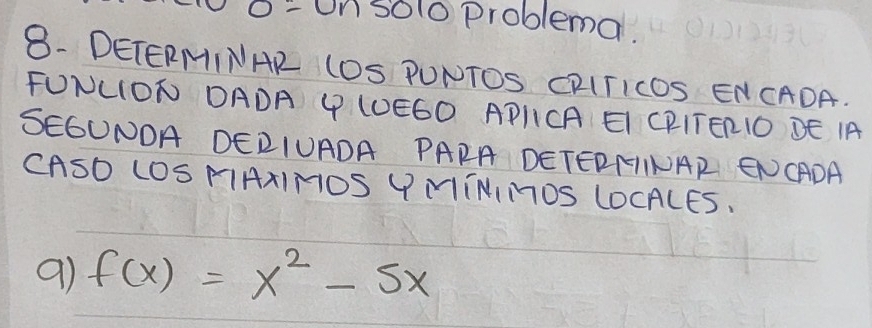 8 = Un solo problema.
8- DETERMINAR LOS PUNTOS CRITICOS EN CADA.
FUNCION DADA Y LUEGO APLICA El CRITERIO DE lA
SEGUNDA DERIVADA PARA DETERMINAR EN CADA
CASO LOS MAXIMOS Y MÍNIMOS LOCALES.
a) f(x) = x² - 5x